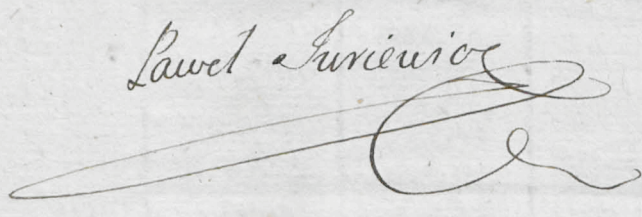 Pawel Juriewicz